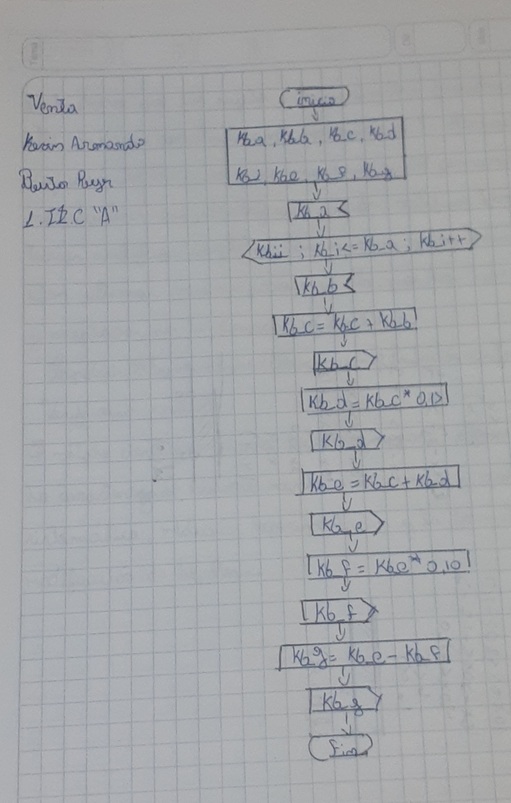 Venta
Kevin Armando
1. IIC "A"
inicio
kb_a, kb_b, kb_c, kb_d
kb_i, kb_e, kb_f, kb_g
kb_a
kb_i ; kb_i<=kb_a ; kb_i++
kb_b
kb_c = kb_c + kb_b
kb_c
kb_d = kb_c *
kb_d
kb_e = kb_c + kb_d
kb_e
kb_f = kb_e * 0.10
kb_f
kb_g = kb_e - kb_f
kb_g
fin